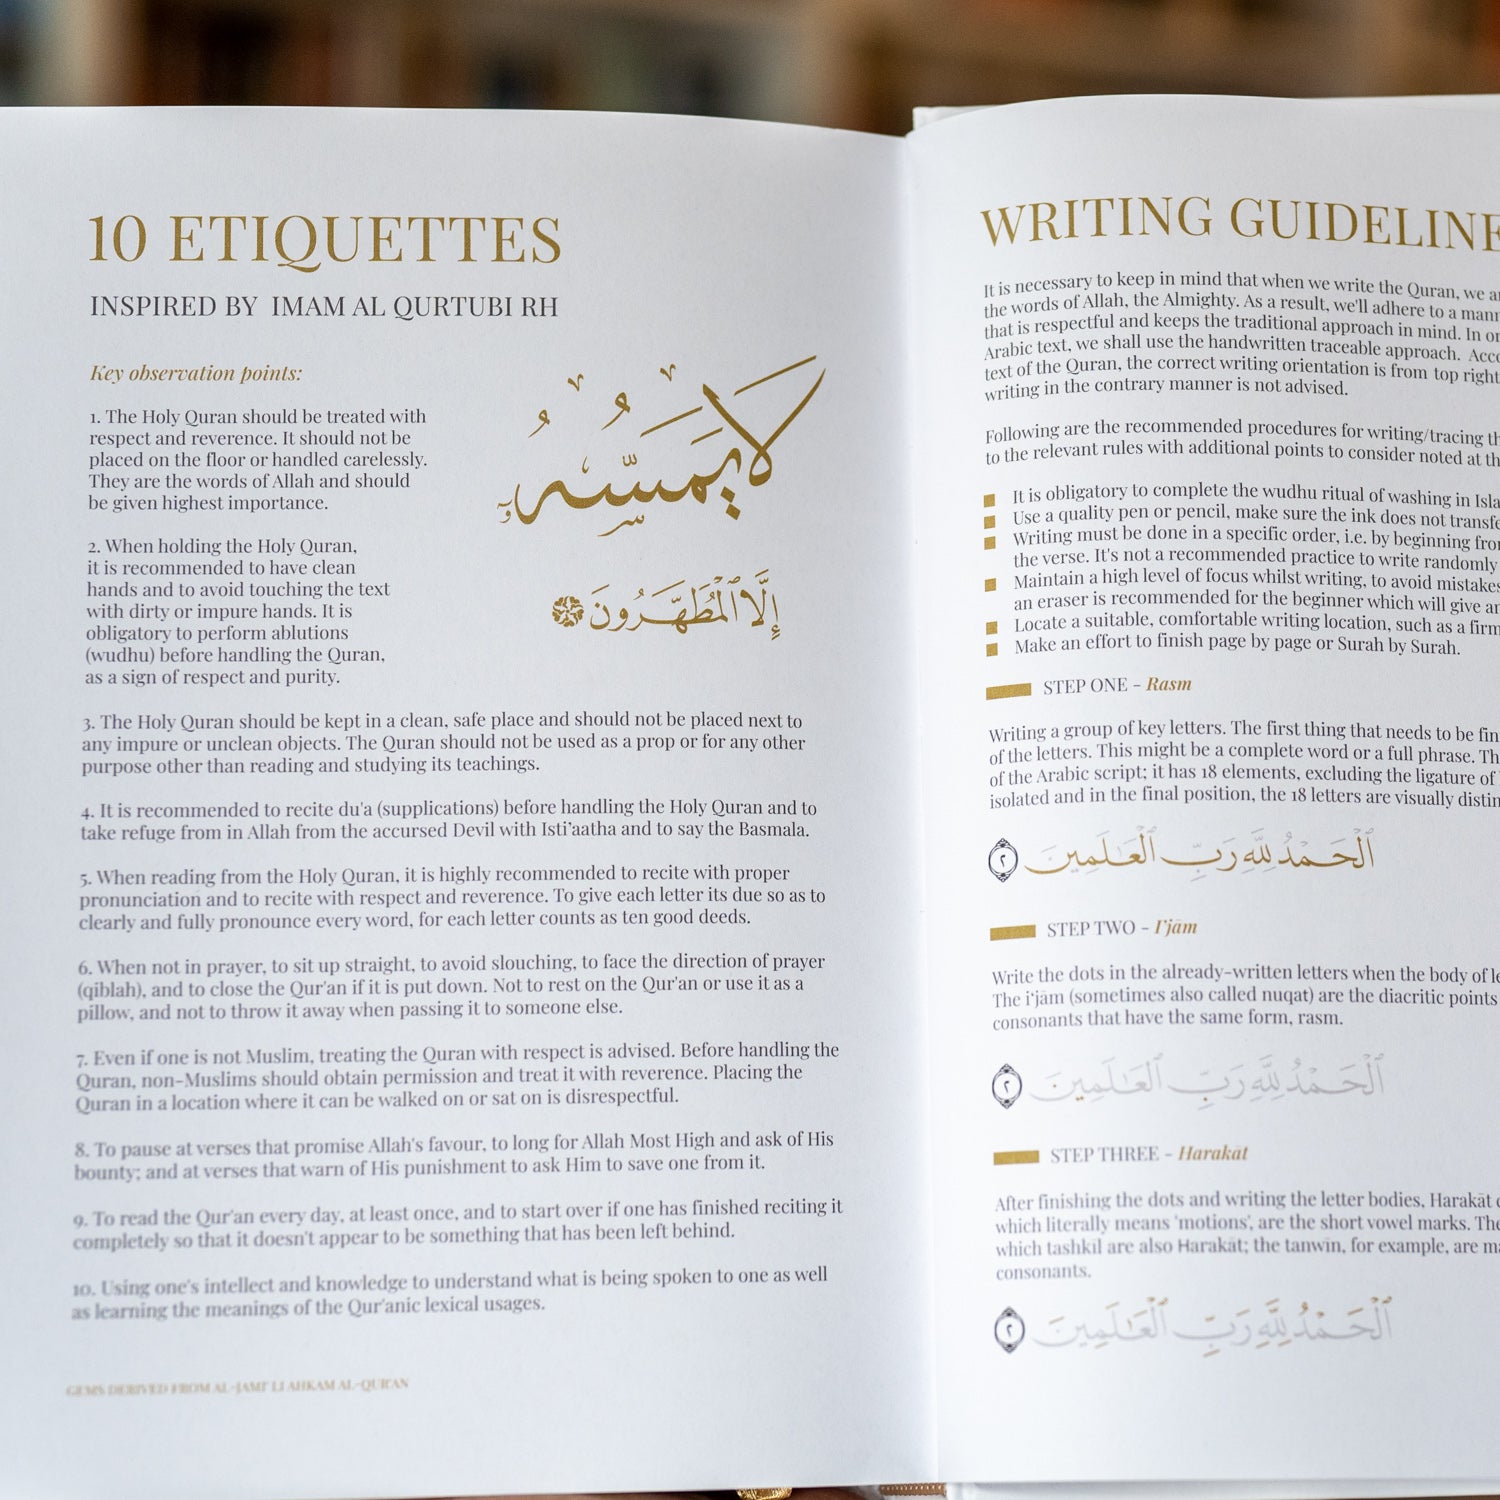 10 ETIQUETTES
INSPIRED BY IMAM AL QURTUBI RH
Key observation points:
1. The Holy Quran should be treated with
respect and reverence. It should not be
placed on the floor or handled carelessly.
They are the words of Allah and should
be given highest importance.
2. When holding the Holy Quran,
it is recommended to have clean
hands and to avoid touching the text
with dirty or impure hands. It is
obligatory to perform ablutions
(wudhu) before handling the Quran,
as a sign of respect and purity.
لَا يَمَسُّهُ
إِلَّا الْمُطَهَّرُونَ
3. The Holy Quran should be kept in a clean, safe place and should not be placed next to
any impure or unclean objects. The Quran should not be used as a prop or for any other
purpose other than reading and studying its teachings.
4. It is recommended to recite du'a (supplications) before handling the Holy Quran and to
take refuge from in Allah from the accursed Devil with Isti'aatha and to say the Basmala.
5. When reading from the Holy Quran, it is highly recommended to recite with proper
pronunciation and to recite with respect and reverence. To give each letter its due so as to
clearly and fully pronounce every word, for each letter counts as ten good deeds.
6. When not in prayer, to sit up straight, to avoid slouching, to face the direction of prayer
(qiblah), and to close the Qur'an if it is put down. Not to rest on the Qur'an or use it as a
pillow, and not to throw it away when passing it to someone else.
7. Even if one is not Muslim, treating the Quran with respect is advised. Before handling the
Quran, non-Muslims should obtain permission and treat it with reverence. Placing the
Quran in a location where it can be walked on or sat on is disrespectful.
8. To pause at verses that promise Allah's favour, to long for Allah Most High and ask of His
bounty; and at verses that warn of His punishment to ask Him to save one from it.
9. To read the Qur'an every day, at least once, and to start over if one has finished reciting it
completely so that it doesn't appear to be something that has been left behind.
10. Using one's intellect and knowledge to understand what is being spoken to one as well
as learning the meanings of the Qur'anic lexical usages.
GEMS DERIVED FROM AL-JAMI' LI AHKAM AL-QUR'AN
WRITING GUIDELINE
It is necessary to keep in mind that when we write the Quran, we
the words of Allah, the Almighty. As a result, we'll adhere to a
that is respectful and keeps the traditional approach in mind. In
Arabic text, we shall use the handwritten traceable approach.
text of the Quran, the correct writing orientation is from top right
writing in the contrary manner is not advised.
Following are the recommended procedures for writing/tracing
to the relevant rules with additional points to consider noted at
It is obligatory to complete the wudhu ritual of washing in
Use a quality pen or pencil, make sure the ink does not
Writing must be done in a specific order, i.e. by beginning
the verse. It's not a recommended practice to write randomly
Maintain a high level of focus whilst writing, to avoid mistakes
an eraser is recommended for the beginner which will give
Locate a suitable, comfortable writing location, such as a firm
Make an effort to finish page by page or Surah by Surah.
STEP ONE - Rasm
Writing a group of key letters. The first thing that needs to be
of the letters. This might be a complete word or a full phrase.
of the Arabic script; it has 18 elements, excluding the ligature of
isolated and in the final position, the 18 letters are visually
ٱلْحَمْدُ لِلَّهِ رَبِّ ٱلْعَـٰلَمِينَ ٢
STEP TWO - I'jām
Write the dots in the already-written letters when the body of
The i'jām (sometimes also called nuqat) are the diacritic points
consonants that have the same form, rasm.
ٱلْحَمْدُ لِلَّهِ رَبِّ ٱلْعَـٰلَمِينَ ٢
STEP THREE - Harakāt
After finishing the dots and writing the letter bodies, Harakāt
which literally means 'motions', are the short vowel marks.
which tashkīl are also Harakāt; the tanwīn, for example, are
consonants.
ٱلْحَمْدُ لِلَّهِ رَبِّ ٱلْعَـٰلَمِينَ ٢